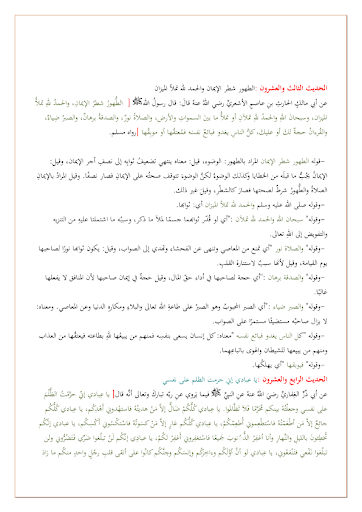 الحديث الثالث والعشرون :الطهور شطر الإيمان والحمد لله تملأ الميزان
عن أبي مالكٍ الحارثِ بنِ عاصمٍ الأشعريِّ رضي اللهُ عنهُ قال: قال رسولُ اللهِ ﷺ [ الطُّهورُ شطرُ الإيمان، والحمدُ للهِ تملأُ
الميزان، وسبحانَ اللهِ والحمدُ للهِ تملآنِ أو تملأُ ما بينَ السمواتِ والأرض، والصلاةُ نورٌ، والصدقةُ برهانٌ، والصبرُ ضياءٌ،
والقُرءانُ حجةٌ لكَ أو عليك، كلُّ الناسِ يغدو فبائعٌ نفسه فمُعتِقُها أو موبِقُها ]رواه مسلم.
-قوله الطهور شطر الإيمان المراد بالطهور: الوضوء، قيل: معناه ينتهي تضعيفُ ثوابِه إلى نصف أجر الإيمان، وقيل:
الإيمانُ يَجُبُّ ما قبلَه من الخطايا وكذلك الوضوءُ لكنَّ الوضوءَ تتوقف صحتُه على الإيمانِ فصار نصفًا. وقيل المرادُ بالإيمانِ
الصلاةُ والطُّهورُ شرطٌ لصحتها فصارَ كالشطر، وقيل غير ذلك.
-وقوله صلى الله عليه وسلم والحمد لله تملأ الميزان أي: ثوابها.
-وقوله" سبحان الله والحمد لله تملآن :"أي لو قُدّر ثوابُهما جسمًا لملأ ما ذكر، وسببُه ما اشتملتا عليه من التنزيه
والتفويض إلى الله تعالى.
-وقوله" والصلاة نور "أي تمنع من المعاصي وتنهى عن الفحشاء وتهدي إلى الصواب، وقيل: يكون ثوابها نورًا لصاحبها
يوم القيامة، وقيل لأنها سببٌ لاستنارة القلب.
-وقوله" والصدقة برهان :"أي حجة لصاحبها في أداء حق المال، وقيل حجةٌ في إيمان صاحبها لأن المنافق لا يفعلها
غالبًا.
-وقوله" والصبر ضياء :"أي الصبر المحبوبُ وهو الصبرُ على طاعةِ الله تعالى والبلاءِ ومكارِه الدنيا وعن المعاصي. ومعناه:
لا يزال صاحبُه مستضيئًا مستمرًا على الصواب.
-وقوله "كل الناس يغدو فبائع نفسه "معناه: كل إنسان يسعى بنفسِه فمنهم من يبيعُها لله بطاعتِه فيعتقُها من العذاب
ومنهم من يبيعها للشيطان والهوى باتباعِهما.
-وقوله" فموبقها "أي يهلكُها.
الحديث الرابع والعشرون :يا عبادي إني حرمت الظلم على نفسي
عن أبي ذَرٍّ الغِفاريِّ رضيَ اللهُ عنهُ عن النبيِّ ﷺ فيما يروي عن ربِّه تبارك وتعالى أنَّه قال[ يا عِبادي إنِّي حرَّمْتُ الظُّلْمَ
على نفسي وجعلْتُهُ بينَكم مُحرَّمًا فلا تَظالَموا. يا عبادي كلُّكُمْ ضالٌّ إلاّ مَنْ هديتُه فاستَهْدوني أهْدِكُم. يا عبادي كلُّكُم
جائعٌ إلاّ مَن أطعَمْتُهُ فاستَطْعِموني أُطْعِمْكُم، يا عبادي كلُّكم عارٍ إلاّ مَنْ كسوتُه فاستَكْسُوني أكْسُكُم، يا عبادي إنَّكم
تُخطِئونَ بالليلِ والنَّهارِ وأنا أغفِرُ الذُّنوبَ جميعًا فاستَغفِروني أغفِرْ لكُم، يا عبادي إنَّكم لنْ تبلُغوا ضَرِّي فتَضُرُّوني ولن
تبلُغوا نَفْعي فتنفَعوني، يا عبادي لو أنَّ أوَّلَكُم وءاخِرَكُم وإنسَكُم وجنَّكُم كانوا على أتقى قلبِ رجُلٍ واحدٍ منكم ما زادَ